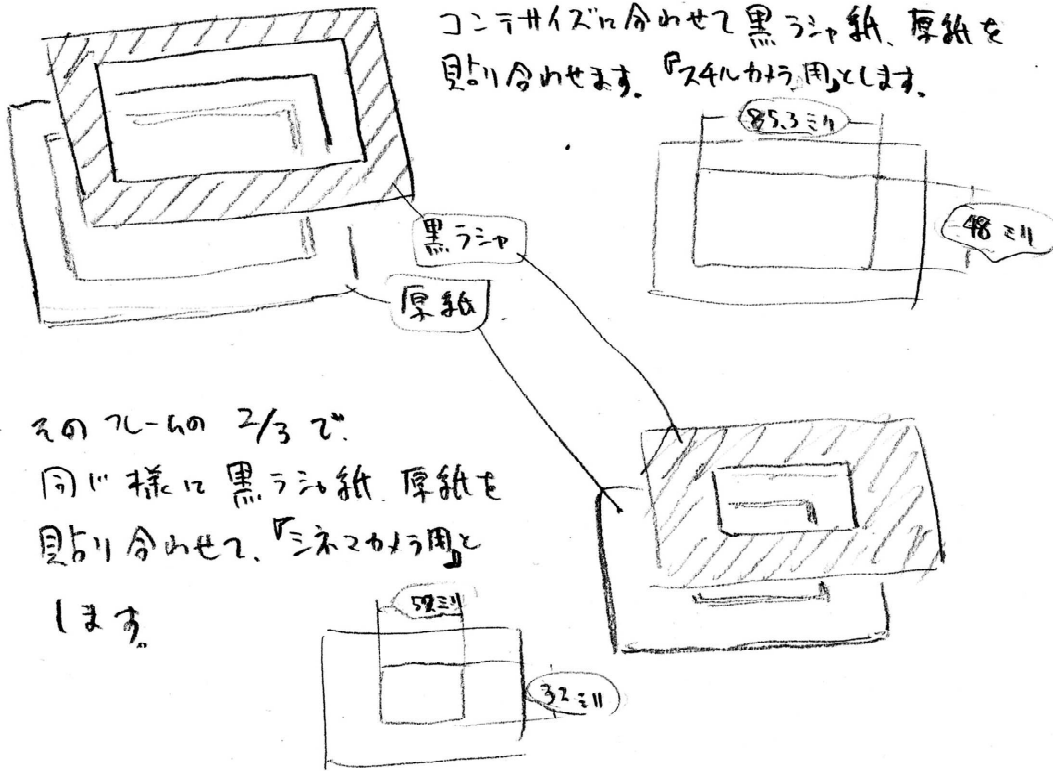 コンテサイズに合わせて黒ラシャ紙、厚紙を
貼り合わせます。『スチルカメラ用』とします。
85.3ミリ
48ミリ
黒ラシャ
厚紙
そのフレームの 2/3 で.
同じ様に黒ラシャ紙 厚紙を
貼り合わせて、『シネマカメラ用』と
します。
ミリ
32ミリ